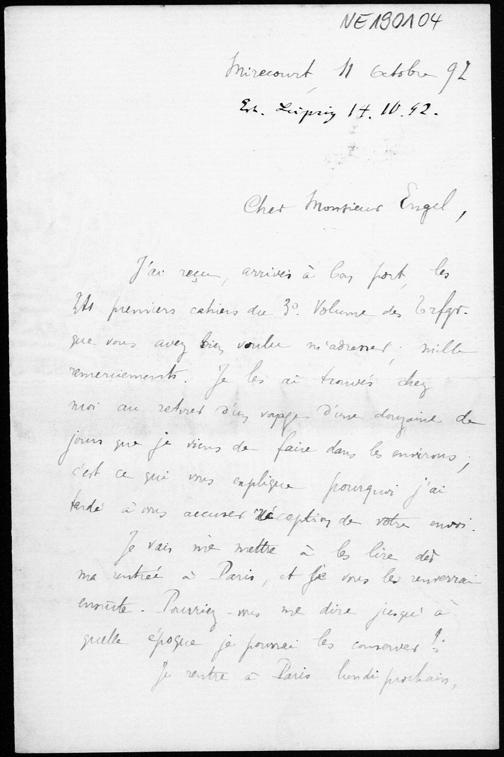 NE190104
Mirecourt, 11 Octobre 92
Erh. Leipzig 14.10.92.
Cher Monsieur Engel,
J'ai reçu, arrivés à bon port, les
premiers cahiers du 3e Volume des Trfgr.
que vous avez bien voulu m'adresser; mille
remerciements. Je les ai trouvés chez
moi au retour d'un voyage d'une douzaine de
jours que je viens de faire dans les environs;
c'est ce qui vous explique pourquoi j'ai
tardé à vous accuser réception de votre envoi.
Je vais me mettre à les lire dès
ma rentrée à Paris, et je vous les renverrai
ensuite. Pourriez-vous me dire jusqu'à
quelle époque je pourrai les conserver?
Je rentre à Paris lundi prochain,